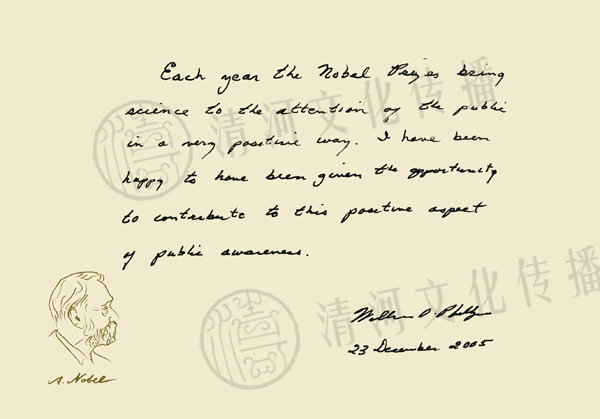 Each year the Nobel Prizes bring
science to the attention of the public
in a very positive way. I have been
happy to have been given the opportunity
to contribute to this positive aspect
of public awareness.
清河文化传播
William D. Phillips
23 December 2005
清河文化传播
A. Nobel